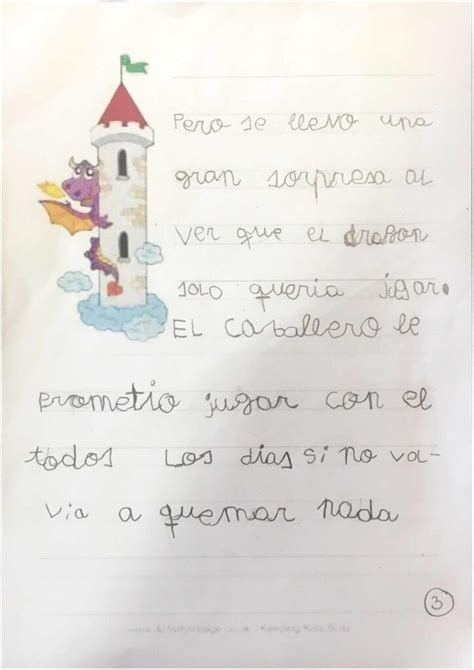 Pero se llevo una
gran sorpresa al
ver que el dragon
solo queria jugar.
EL caballero le
prometio jugar con el
todos Los dias si no va-
via a quemar nada
3
www.ActivityVillage.co.uk - Keeping Kids Busy